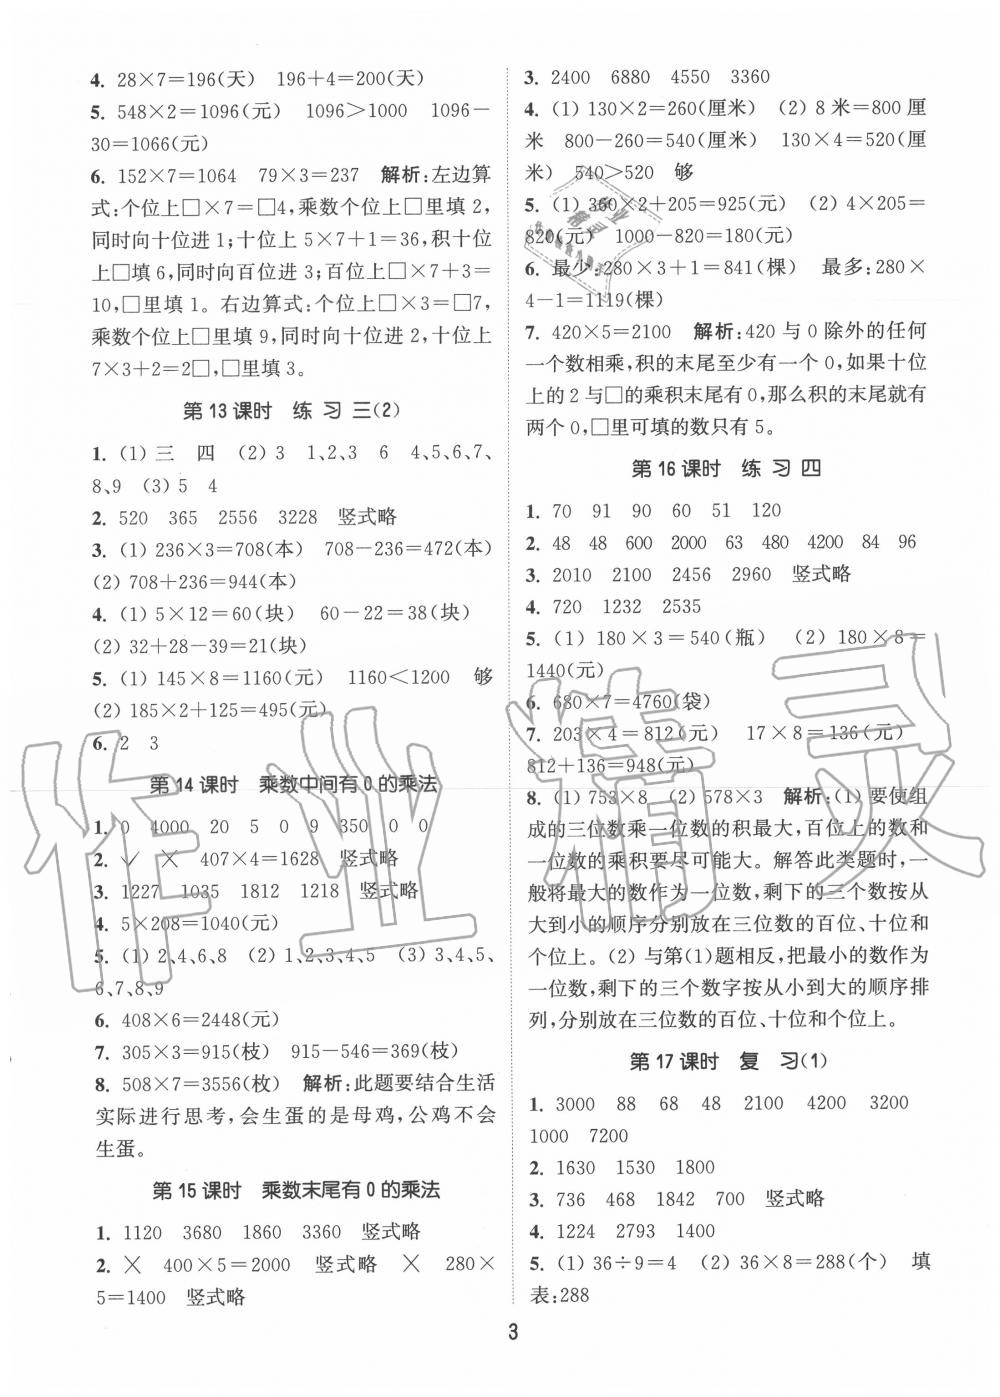 4. 28×7=196(天) 196+4=200(天)
5. 548×2=1096(元) 1096>1000 1096-
30=1066(元)
6. 152×7=1064 79×3=237 解析:左边算
式:个位上□×7=□4,乘数个位上□里填2,
同时向十位进1;十位上5×7+1=36,积十位
上□填6,同时向百位进3;百位上□×7+3=
10,□里填1。右边算式:个位上□×3=□7,
乘数个位上□里填9,同时向十位进2,十位上
7×3+2=2□,□里填3。
第13课时 练 习 三(2)
1. (1)三 四 (2)3 1、2、3 6 4、5、6、7、
8、9 (3)5 4
2. 520 365 2556 3228 竖式略
3. (1)236×3=708(本) 708-236=472(本)
(2)708+236=944(本)
4. (1)5×12=60(块) 60-22=38(块)
(2)32+28-39=21(块)
5. (1)145×8=1160(元) 1160<1200 够
(2)185×2+125=495(元)
6. 2 3
第14课时 乘数中间有0的乘法
1. 0 4000 20 5 0 9 350 0 0
2. ✓ ✕ 407×4=1628 竖式略
3. 1227 1035 1812 1218 竖式略
4. 5×208=1040(元)
5. (1)2、4、6、8 (2)1、2、3、4、5 (3)3、4、5、
6、7、8、9
6. 408×6=2448(元)
7. 305×3=915(枝) 915-546=369(枝)
8. 508×7=3556(枚) 解析:此题要结合生活
实际进行思考,会生蛋的是母鸡,公鸡不会
生蛋。
第15课时 乘数末尾有0的乘法
1. 1120 3680 1860 3360 竖式略
2. ✕ 400×5=2000 竖式略 ✕ 280×
5=1400 竖式略
3. 2400 6880 4550 3360
4. (1)130×2=260(厘米) (2)8米=800(厘
米 800-260=540(厘米) 130×4=520(厘
米) 540>520 够
5. (1)360×2+205=925(元) (2)4×205=
820(元) 1000-820=180(元)
6. 最少:280×3+1=841(棵) 最多:280×
4-1=1119(棵)
7. 420×5=2100 解析:420与0除外的任何
一个数相乘,积的末尾至少有一个0,如果十位
上的2与□的乘积末尾有0,那么积的末尾就有
两个0,□里可填的数只有5。
第16课时 练 习 四
1. 70 91 90 60 51 120
2. 48 48 600 2000 63 480 4200 84 96
3. 2010 2100 2456 2960 竖式略
4. 720 1232 2535
5. (1)180×3=540(瓶) (2)180×8=
1440(元)
6. 680×7=4760(袋)
7. 203×4=812(元) 17×8=136(元)
812+136=948(元)
8. (1)753×8 (2)578×3 解析:(1)要使组
成的三位数乘一位数的积最大,百位上的数和
一位数的乘积要尽可能大。解答此类题时,一
般将最大的数作为一位数,剩下的三个数按从
大到小的顺序分别放在三位数的百位、十位和
个位上。(2)与第(1)题相反,把最小的数作为
一位数,剩下的三个数字按从小到大的顺序排
列,分别放在三位数的百位、十位和个位上。
第17课时 复 习(1)
1. 3000 88 68 48 2100 4200 3200
1000 7200
2. 1630 1530 1800
3. 736 468 1842 700 竖式略
4. 1224 2793 1400
5. (1)36÷9=4 (2)36×8=288(个) 填
表:288
3
作业精灵